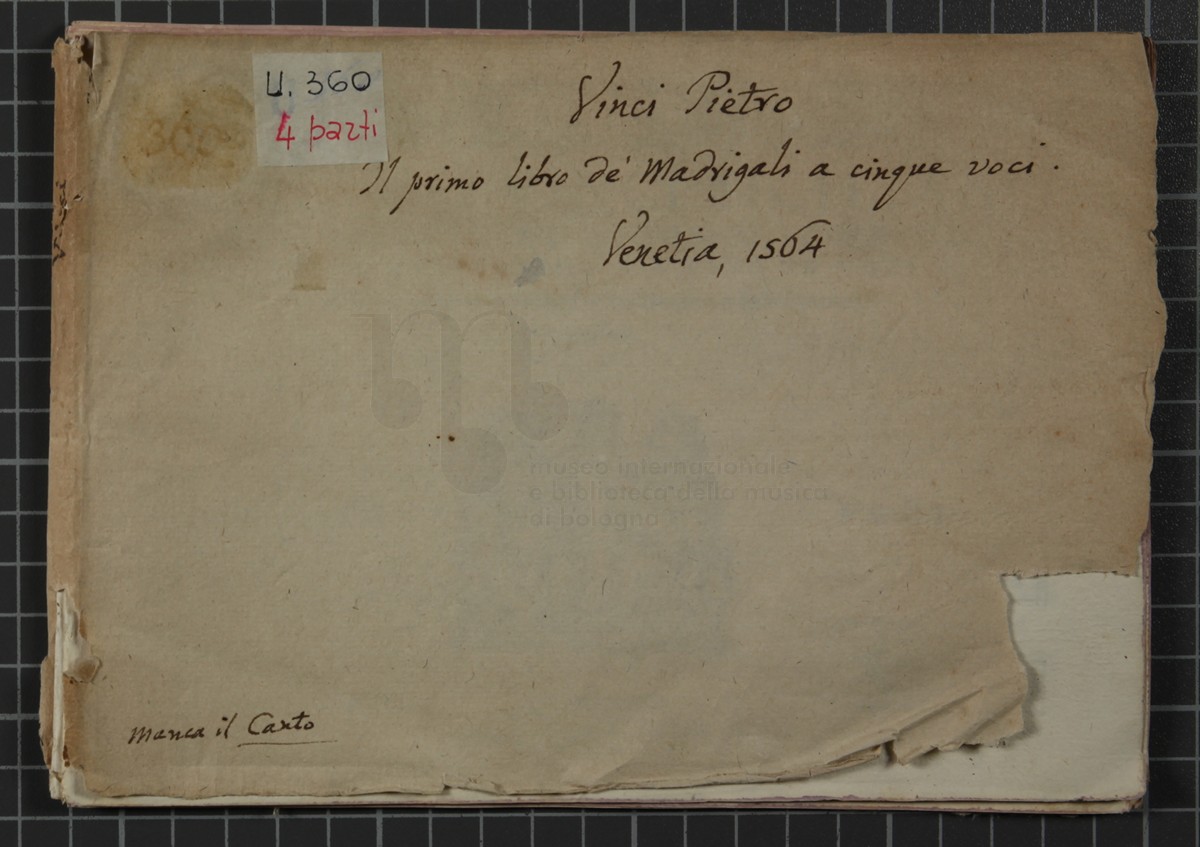 U. 360
4 parti
Vinci Pietro
Il primo libro de' Madrigali a cinque voci.
Venetia, 1564
museo internazionale
e biblioteca della musica
di bologna
manca il Canto